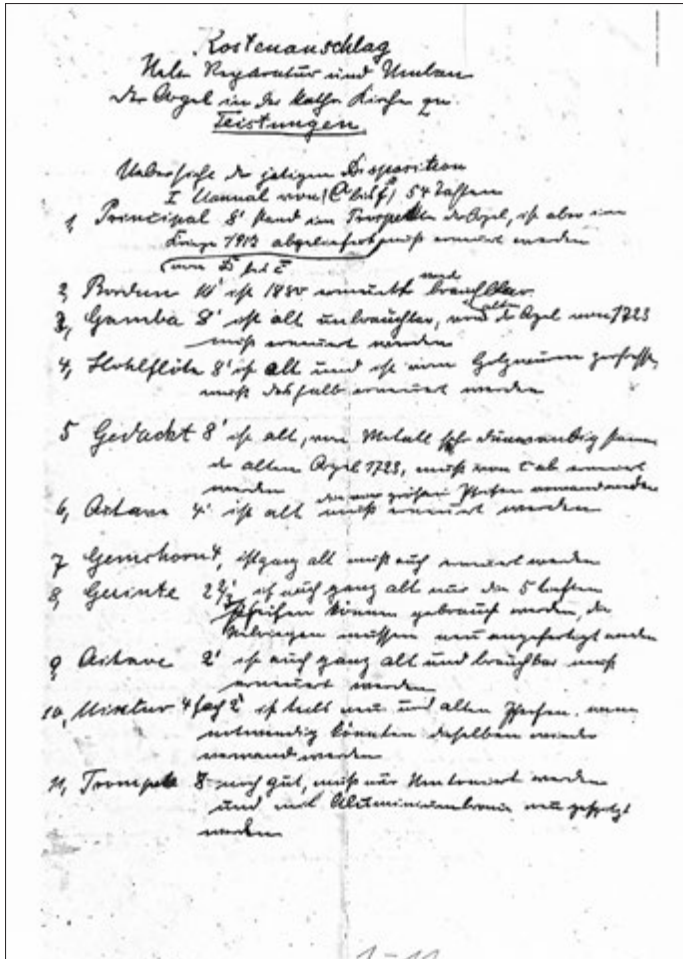 Kostenanschlag
Reparatur und Umbau
der Orgel in der kathol. Kirche zu
Teistungen
Uebersicht der jetzigen Disposition
I Manual von (C bis f) 54 Tasten
1, Principal 8' stand im Prospekte der Orgel, ist aber im
Kriege abgeliefert muß erneuert werden
2, Bordun 16' ist 1880 erneuert und brauchbar
3, Gamba 8' ist alt unbrauchbar, von der alten Orgel von 1723
muß erneuert werden
4, Hohlflöte 8' ist alt und ist vom Holzwurm zerfressen,
muß deshalb erneuert werden
5 Gedackt 8' ist alt, von Metall sehr dünnwandig
der alten Orgel 1723, muß von c ab erneuert
werden
6, Octave 4' ist alt muß erneuert werden
7 Gemshorn 4, ist ganz alt muß auch erneuert werden
8, Quinte 2 2/3' ist auch ganz alt nur die 5
Pfeifen können gebraucht werden, die
Uebrigen müssen neu angefertigt werden
9, Octave 2' ist auch ganz alt und brauchbar muß
erneuert werden
10, Mixtur 4 fach 2' ist teils neu und alten Pfeifen, wenn
notwendig könnten dieselben wieder
verwand werden
11, Trompete 8 noch gut, muß nur werden
und mit Aluminiumbronce neu
werden